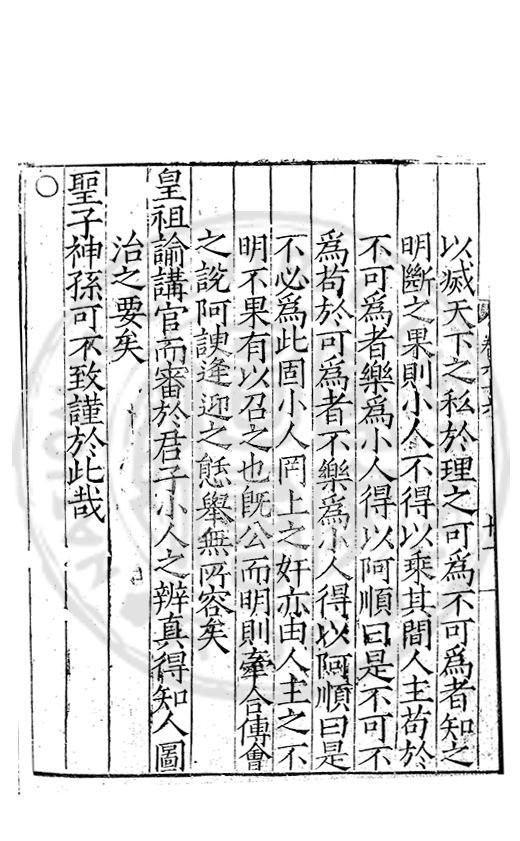 以滅天下之私於理之可為不可為者知之
明斷之果則小人不得以乘其間人主苟於
不可為者樂為小人得以阿順曰是不可不
為苟於可為者不樂為小人得以阿順曰是
不必為此固小人罔上之奸亦由人主之不
明不果有以召之也旣公而明則牽合傅會
之說阿諛逢迎之態舉無所容矣
皇祖諭講官而審於君子小人之辨真得知人圖
治之要矣
聖子神孫可不致謹於此哉
○